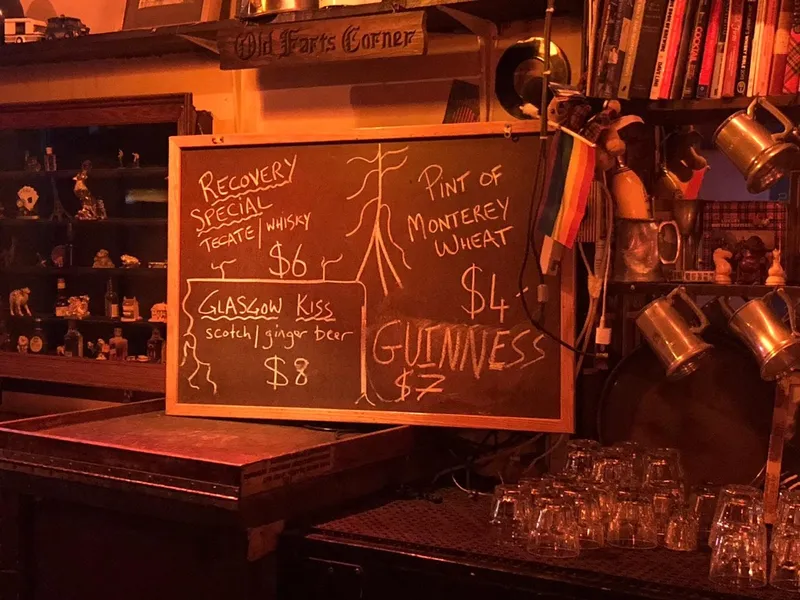 Old Farts Corner
RECOVERY
SPECIAL
TECATE/WHISKY
$6
GLASGOW KISS
scotch/ginger beer
$8
PINT OF
MONTEREY
WHEAT
$4-
GUINNESS
$7